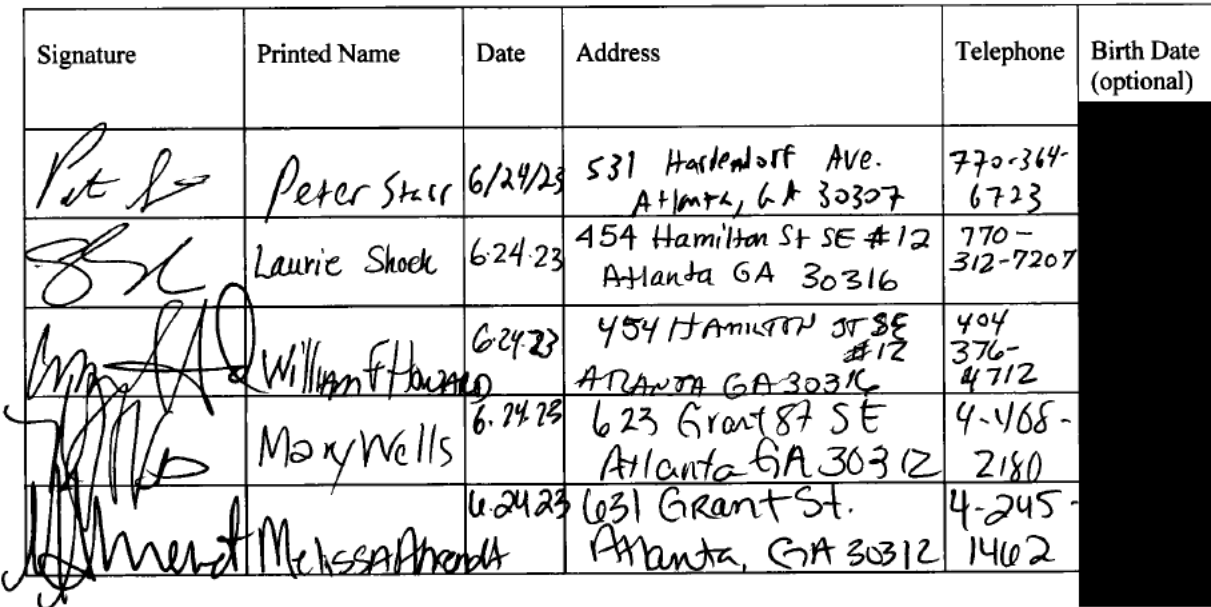 Signature Printed Name Date Address Telephone Birth Date
(optional)
Peter Starr 6/24/23 531 Hardendorff Ave. 770-364-
Atlanta, GA 30307 6723
Laurie Shock 6.24.23 454 Hamilton St SE #12 770-
Atlanta GA 30316 312-7207
William F Howard 6.24.23 454 HAMILTON ST SE 404
#12 376-
ATLANTA GA 30316 4712
Mary Wells 6.24.23 623 Grant St SE 4-468-
Atlanta GA 30312 2180
Melissa Ahrendt 6.24.23 631 Grant St. 4-245-
Atlanta, GA 30312 1462